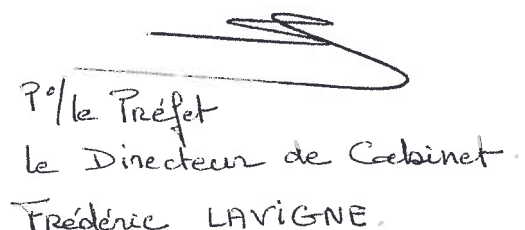 P°/le Préfet
le Directeur de Cabinet.
Frédéric LAVIGNE.